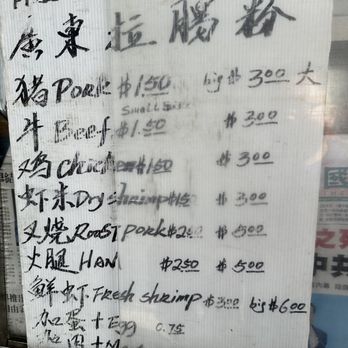 廣東拉腸粉
猪 Pork $1.50 big $3.00 大
Small Size
牛 Beef $1.50 $3.00
鸡 Chicken $1.50 $3.00
虾米 Dry shrimp $1.5 $3.00
叉燒 Roast pork $2.50 $5.00
火腿 HAM $2.50 $5.00
鮮虾 Fresh shrimp $3.00 big $6.00
加蛋 + Egg 0.75
之死
中共